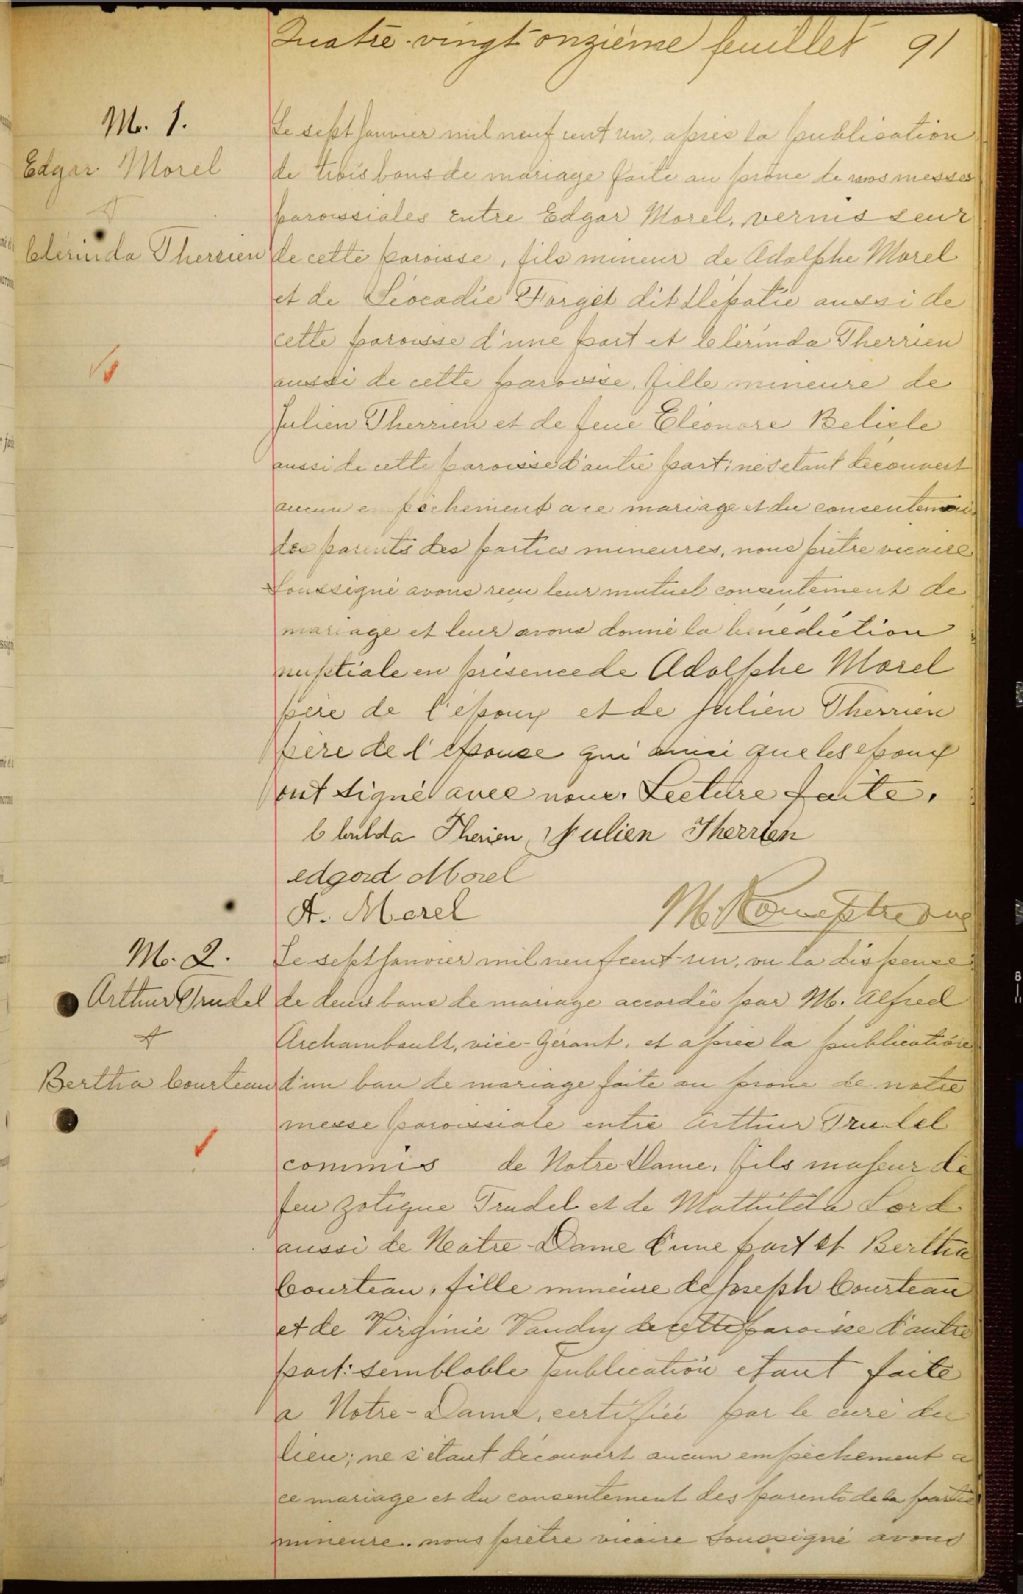 Quatre-vingt onzième feuillet 91
M. 1.
Edgar Morel
+
Clérinda Therrien
Le sept Janvier mil neuf cent un, après la publication
de trois bans de mariage faite au prône de nos messes
paroissiales entre Edgar Morel, vernisseur
de cette paroisse, fils mineur de Adolphe Morel
et de Léocadie Forget dit Dépatie aussi de
cette paroisse d'une part et Clérinda Therrien
aussi de cette paroisse, fille mineure de
Julien Therrien et de feue Eléonore Belisle
aussi de cette paroisse d'autre part; ne s'étant découvert
aucun empêchement a ce mariage et du consentement
des parents des parties mineures, nous prêtre vicaire
soussigné avons reçu leur mutuel consentement de
mariage et leur avons donné la bénédiction
nuptiale en présence de Adolphe Morel
père de l'époux et de Julien Therrien
père de l'épouse qui ainsi que les epoux
ont signé avec nous. Lecture faite.
Therien Julien Therrien
edgord Morel
A. Morel M.
M. 2.
Arthur Trudel
+
Bertha Courteau
Le sept Janvier mil neuf cent-un, vu la dispense
de deux bans de mariage accordée par M. Alfred
Archambault, vice-gérant, et après la publication
d'un ban de mariage faite au prône de notre
messe paroissiale entre Arthur Trudel
commis de Notre-Dame, fils majeur de
feu Zotique Trudel et de Mathilda Lord
aussi de Notre-Dame d'une part et Bertha
Courteau, fille mineure de Joseph Courteau
et de Virginie Vaudry de cette paroisse d'autre
part: semblable publication etant faite
a Notre-Dame, certifiée par le curé du
lieu; ne s'étant découvert aucun empêchement a
ce mariage et du consentement des parents de la partie
mineure. nous prêtre vicaire soussigné avons